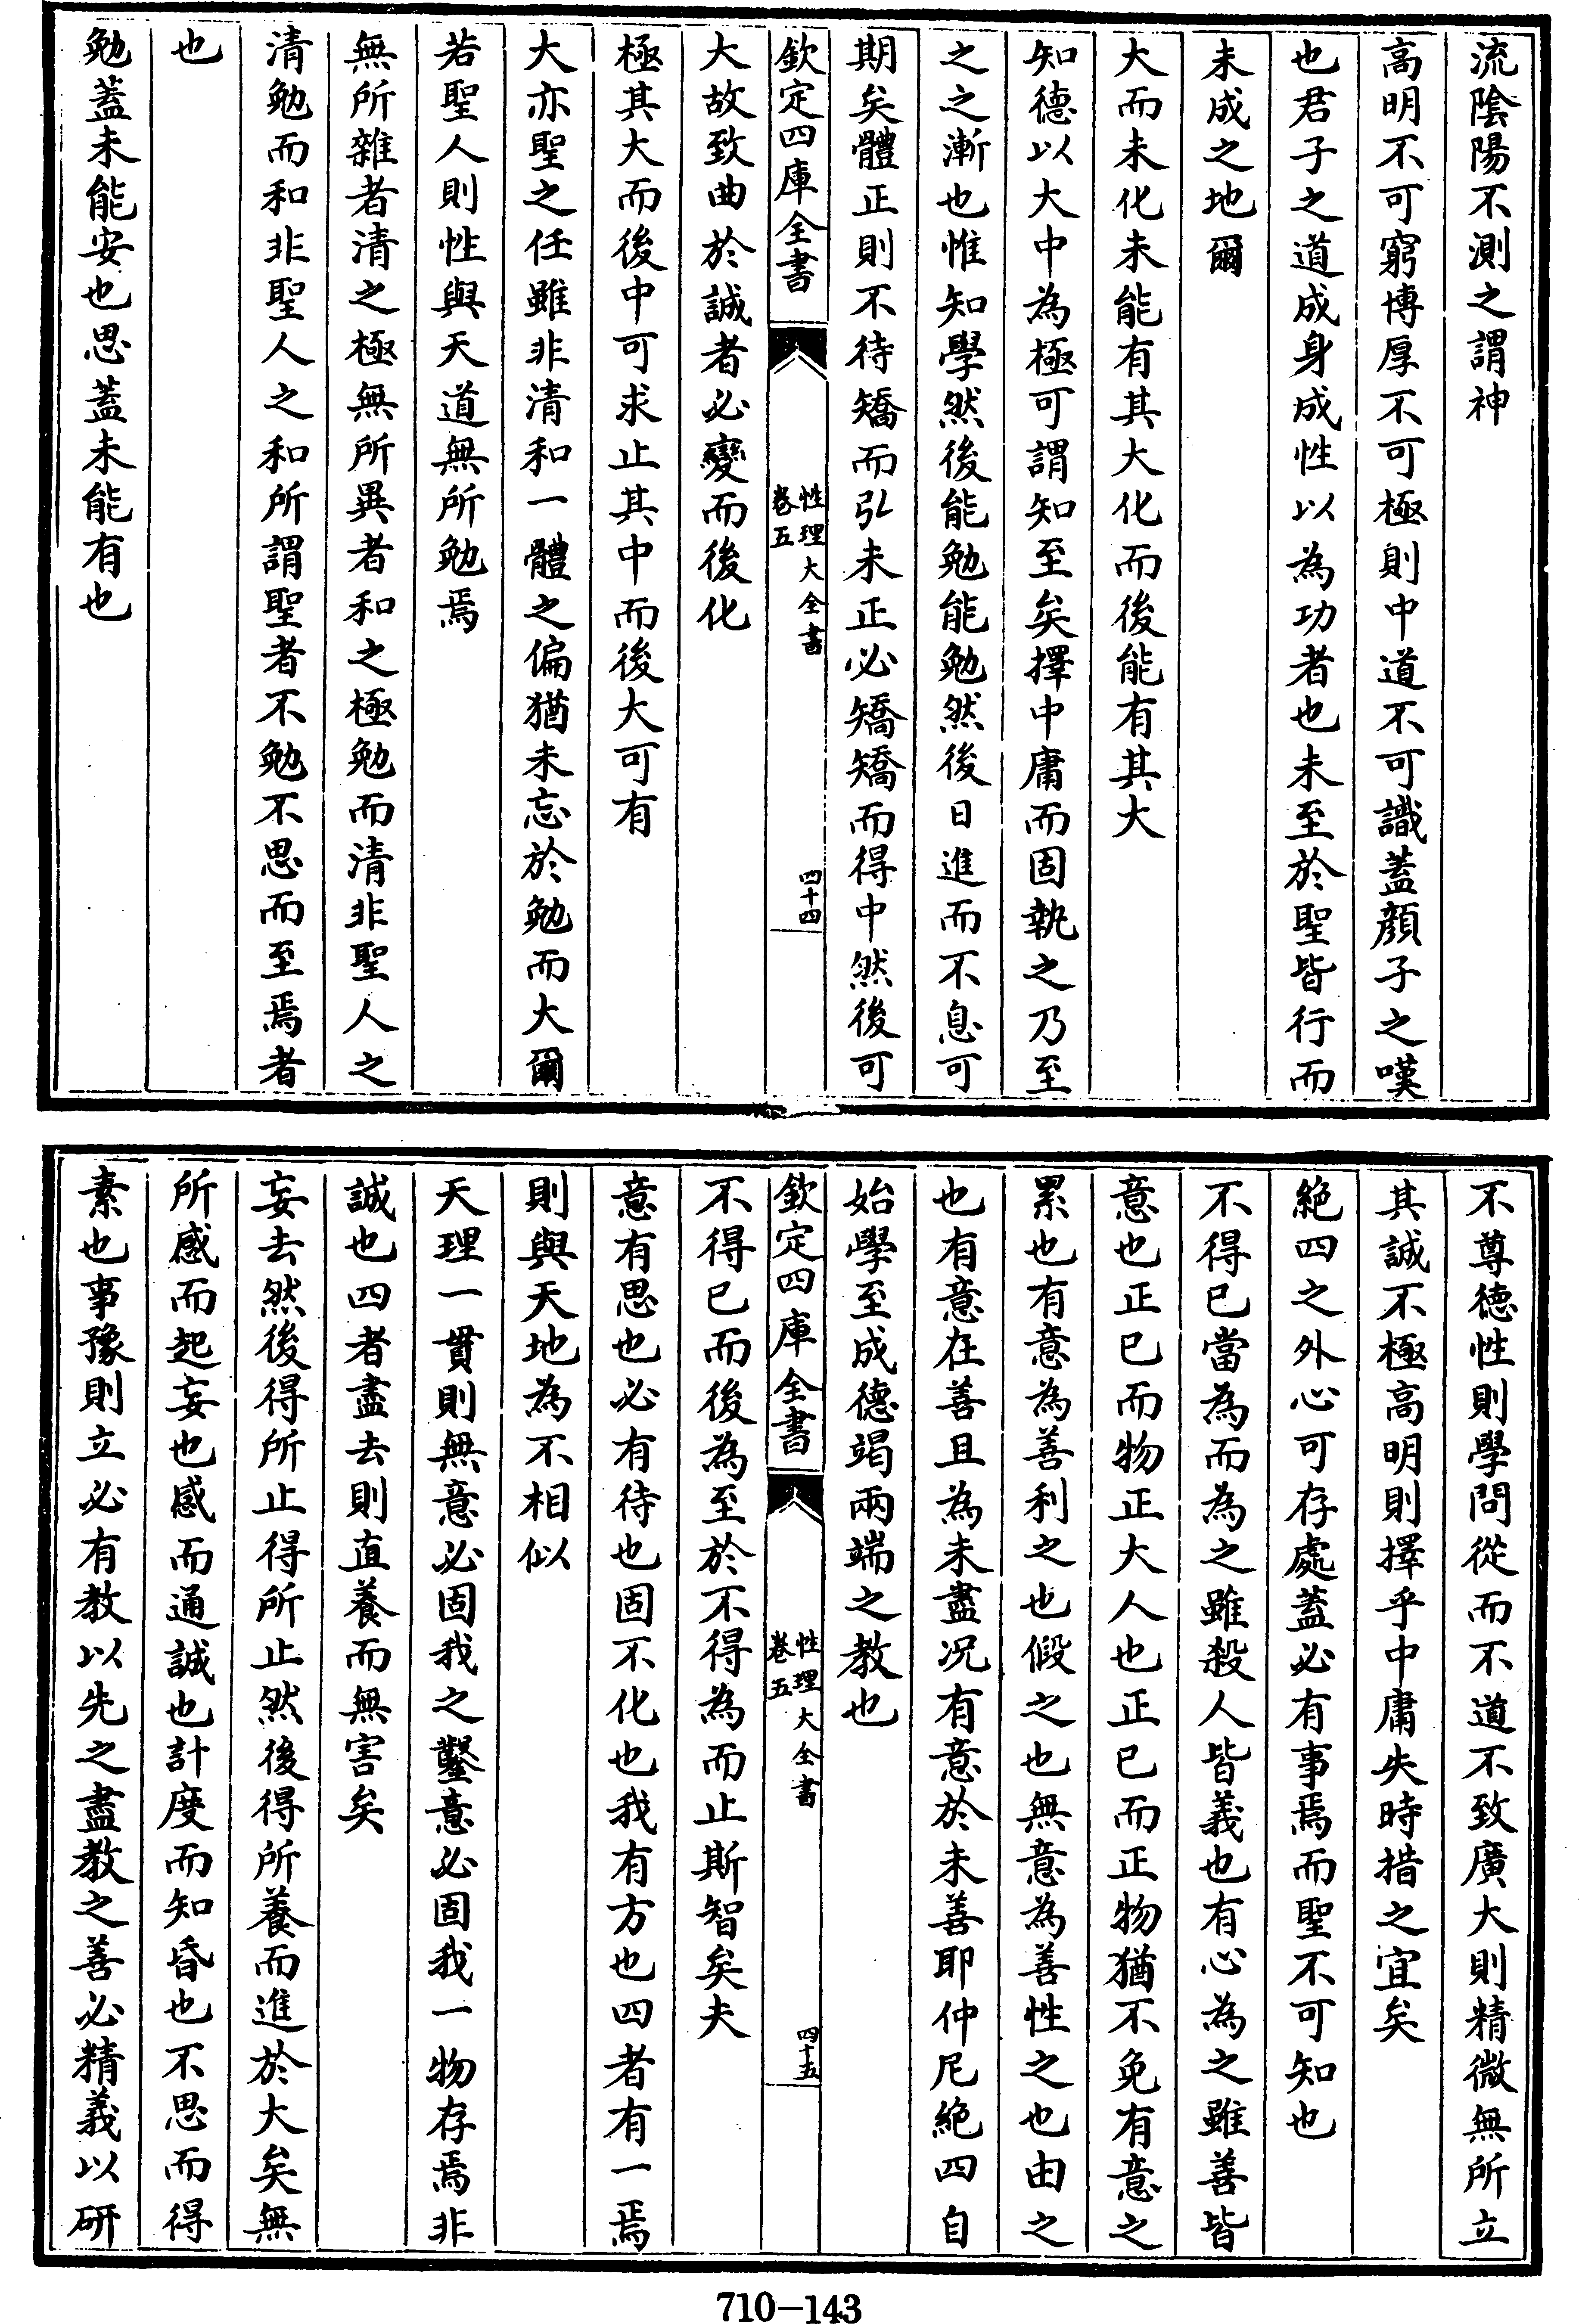 流陰陽不測之謂神
高明不可窮博厚不可極則中道不可識蓋顔子之嘆
也君子之道成身成性以為功者也未至於聖皆行而
未成之地爾
大而未化未能有其大化而後能有其大
知德以大中為極可謂知至矣擇中庸而固執之乃至
之之漸也惟知學然後能勉能勉然後日進而不息可
期矣體正則不待矯而弘未正必矯矯而得中然後可
欽定四庫全書
性理大全書
卷五
四十四
大故致曲於誠者必變而後化
極其大而後中可求止其中而後大可有
大亦聖之任雖非清和一體之偏猶未忘於勉而大爾
若聖人則性與天道無所勉焉
無所雜者清之極無所異者和之極勉而清非聖人之
清勉而和非聖人之和所謂聖者不勉不思而至焉者
也
勉蓋未能安也思蓋未能有也
不尊德性則學問從而不道不致廣大則精微無所立
其誠不極高明則擇乎中庸失時措之宜矣
絕四之外心可存處蓋必有事焉而聖不可知也
不得已當為而為之雖殺人皆義也有心為之雖善皆
意也正已而物正大人也正已而正物猶不免有意之
累也有意為善利之也假之也無意為善性之也由之
也有意在善且為未盡况有意於未善耶仲尼絕四自
始學至成德竭兩端之教也
欽定四庫全書
性理大全書
卷五
四十五
不得已而後為至於不得為而止斯智矣夫
意有思也必有待也固不化也我有方也四者有一焉
則與天地為不相似
天理一貫則無意必固我之鑿意必固我一物存焉非
誠也四者盡去則直養而無害矣
妄去然後得所止得所止然後得所養而進於大矣無
所感而起妄也感而通誠也計度而知昏也不思而得
素也事豫則立必有教以先之盡教之善必精義以研
710-143